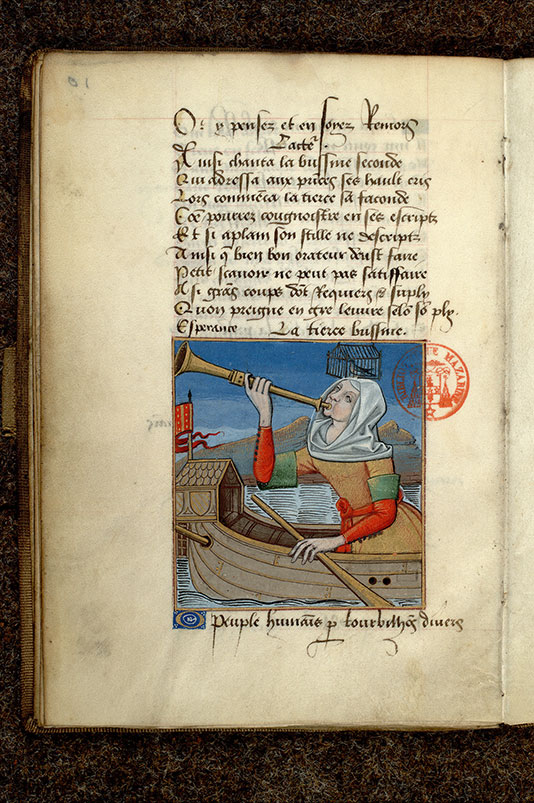 Or y pensez et en soyez Remors
Lacte͂
Ainsi chanta la bussine seconde
Qui adressa aux prices ses hault cris
Lors commēca la tierce sa faconde
Cōe pourrez congnoistre en ses escriptz
Et si aplain son stille ne descriptz
Ainsi q bien bon orateur deust faire
Petit scauoir ne peut pas satiffaire
A si grās coups dōt Requiers & suply
Quon preigne en gre leuure selō sō ply.
Esperance La tierce bussine.
MAZARINE
Peuple humais p tourbillōs diuers